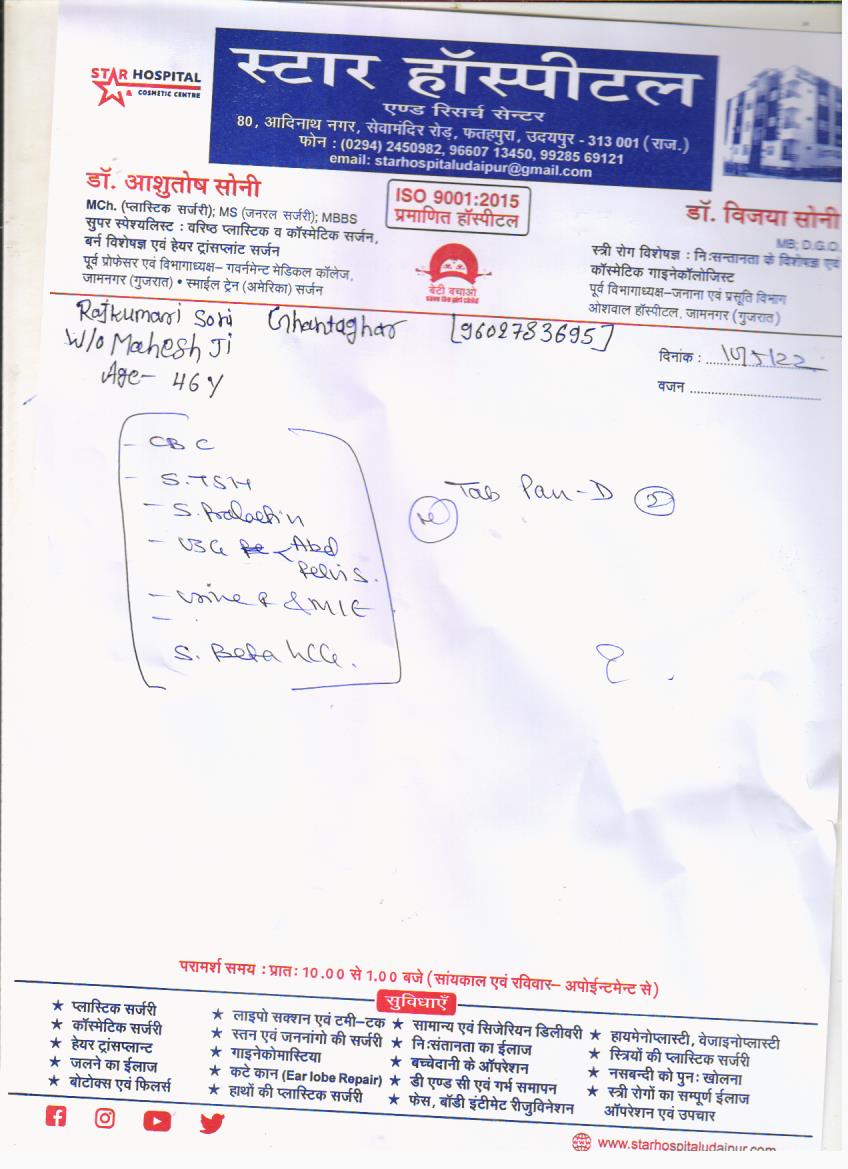 STAR HOSPITAL
& COSMETIC CENTRE
स्टार हॉस्पीटल
एण्ड रिसर्च सेन्टर
80, आदिनाथ नगर, सेवामंदिर रोड़, फतहपुरा, उदयपुर - 313 001 (राज.)
फोन : (0294) 2450982, 96607 13450, 99285 69121
email: starhospitaludaipur@gmail.com
डॉ. आशुतोष सोनी
MCh. (प्लास्टिक सर्जरी); MS (जनरल सर्जरी); MBBS
सुपर स्पेश्यलिस्ट : वरिष्ठ प्लास्टिक व कॉस्मेटिक सर्जन,
बर्न विशेषज्ञ एवं हेयर ट्रांसप्लांट सर्जन
पूर्व प्रोफेसर एवं विभागाध्यक्ष– गवर्नमेन्ट मेडिकल कॉलेज,
जामनगर (गुजरात) • स्माईल ट्रेन (अमेरिका) सर्जन
ISO 9001:2015
प्रमाणित हॉस्पीटल
बेटी बचाओ
save the girl child
डॉ. विजया सोनी
MB; D.G.O.
स्त्री रोग विशेषज्ञ : निःसन्तानता के विशेषज्ञ एवं
कॉस्मेटिक गाइनेकॉलोजिस्ट
पूर्व विभागाध्यक्ष–जनाना एवं प्रसूति विभाग
ओशवाल हॉस्पीटल, जामनगर (गुजरात)
Rajkumari Soni Ghantaghar [9602783695]
W/o Mahesh Ji
Age- 46 y
दिनांक : 10/5/22
वजन
- CBC
- S.TSH
- S. Prolactin
- USG Abd
Pelvis.
- Urine R & M/E
S. Beta hCG.
Tab Pan-D
परामर्श समय : प्रातः 10.00 से 1.00 बजे (सांयकाल एवं रविवार– अपोईन्टमेन्ट से)
सुविधाएँ
★ प्लास्टिक सर्जरी
★ कॉस्मेटिक सर्जरी
★ हेयर ट्रांसप्लान्ट
★ जलने का ईलाज
★ बोटोक्स एवं फिलर्स
★ लाइपो सक्शन एवं टमी–टक
★ स्तन एवं जननांगो की सर्जरी
★ गाइनेकोमास्टिया
★ कटे कान (Ear lobe Repair)
★ हाथों की प्लास्टिक सर्जरी
★ सामान्य एवं सिजेरियन डिलीवरी
★ निःसंतानता का ईलाज
★ बच्चेदानी के ऑपरेशन
★ डी एण्ड सी एवं गर्भ समापन
★ फेस, बॉडी इंटीमेट रीजुविनेशन
★ हायमेनोप्लास्टी, वेजाइनोप्लास्टी
★ स्त्रियों की प्लास्टिक सर्जरी
★ नसबन्दी को पुनः खोलना
★ स्त्री रोगों का सम्पूर्ण ईलाज
ऑपरेशन एवं उपचार
www.starhospitaludaipur.com